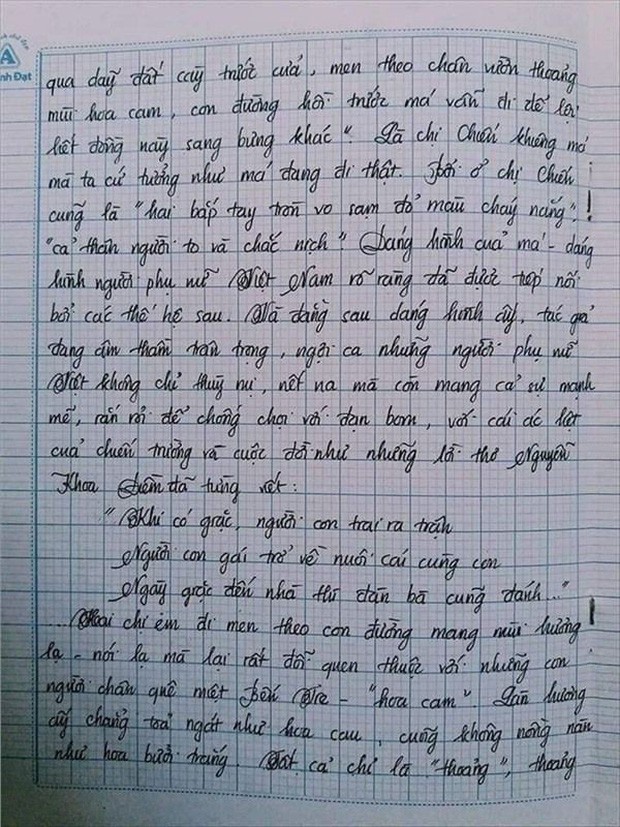 A
nh Đạt
qua dãy đất cày trước cửa, men theo chân vườn thoảng
mùi hoa cam, con đường hồi trước má vẫn đi để lội
hết đồng này sang bưng khác". Là chị Chiến khiêng má
mà ta cứ tưởng như má đang đi thật. Bởi ở chị Chiến
cũng là "hai bắp tay tròn vo sạm đỏ màu cháy nắng",
"cả thân người to và chắc nịch". Dáng hình của má - dáng
hình người phụ nữ Việt Nam rõ ràng đã được tiếp nối
bởi các thế hệ sau. Và đằng sau dáng hình ấy, tác giả
đang âm thầm trân trọng, ngợi ca những người phụ nữ
Việt không chỉ thùy mị, nết na mà còn mang cả sự mạnh
mẽ, rắn rỏi để chống chọi với đạn bom, với cái ác liệt
của chiến trường và cuộc đời như những lời thơ Nguyễn
Khoa Điềm đã từng viết:
"Khi có giặc, người con trai ra trận
Người con gái trở về nuôi cái cùng con
Ngày giặc đến nhà thì đàn bà cũng đánh..."
...Hai chị em đi men theo con đường mang mùi hương
lạ - nói lạ mà lại rất đỗi quen thuộc với những con
người chân quê miệt Bến Tre - "hoa cam". Làn hương
ấy chẳng toả ngát như hoa cau, cũng không nồng nàn
như hoa bưởi trắng. Tất cả chỉ là "thoảng", thoảng